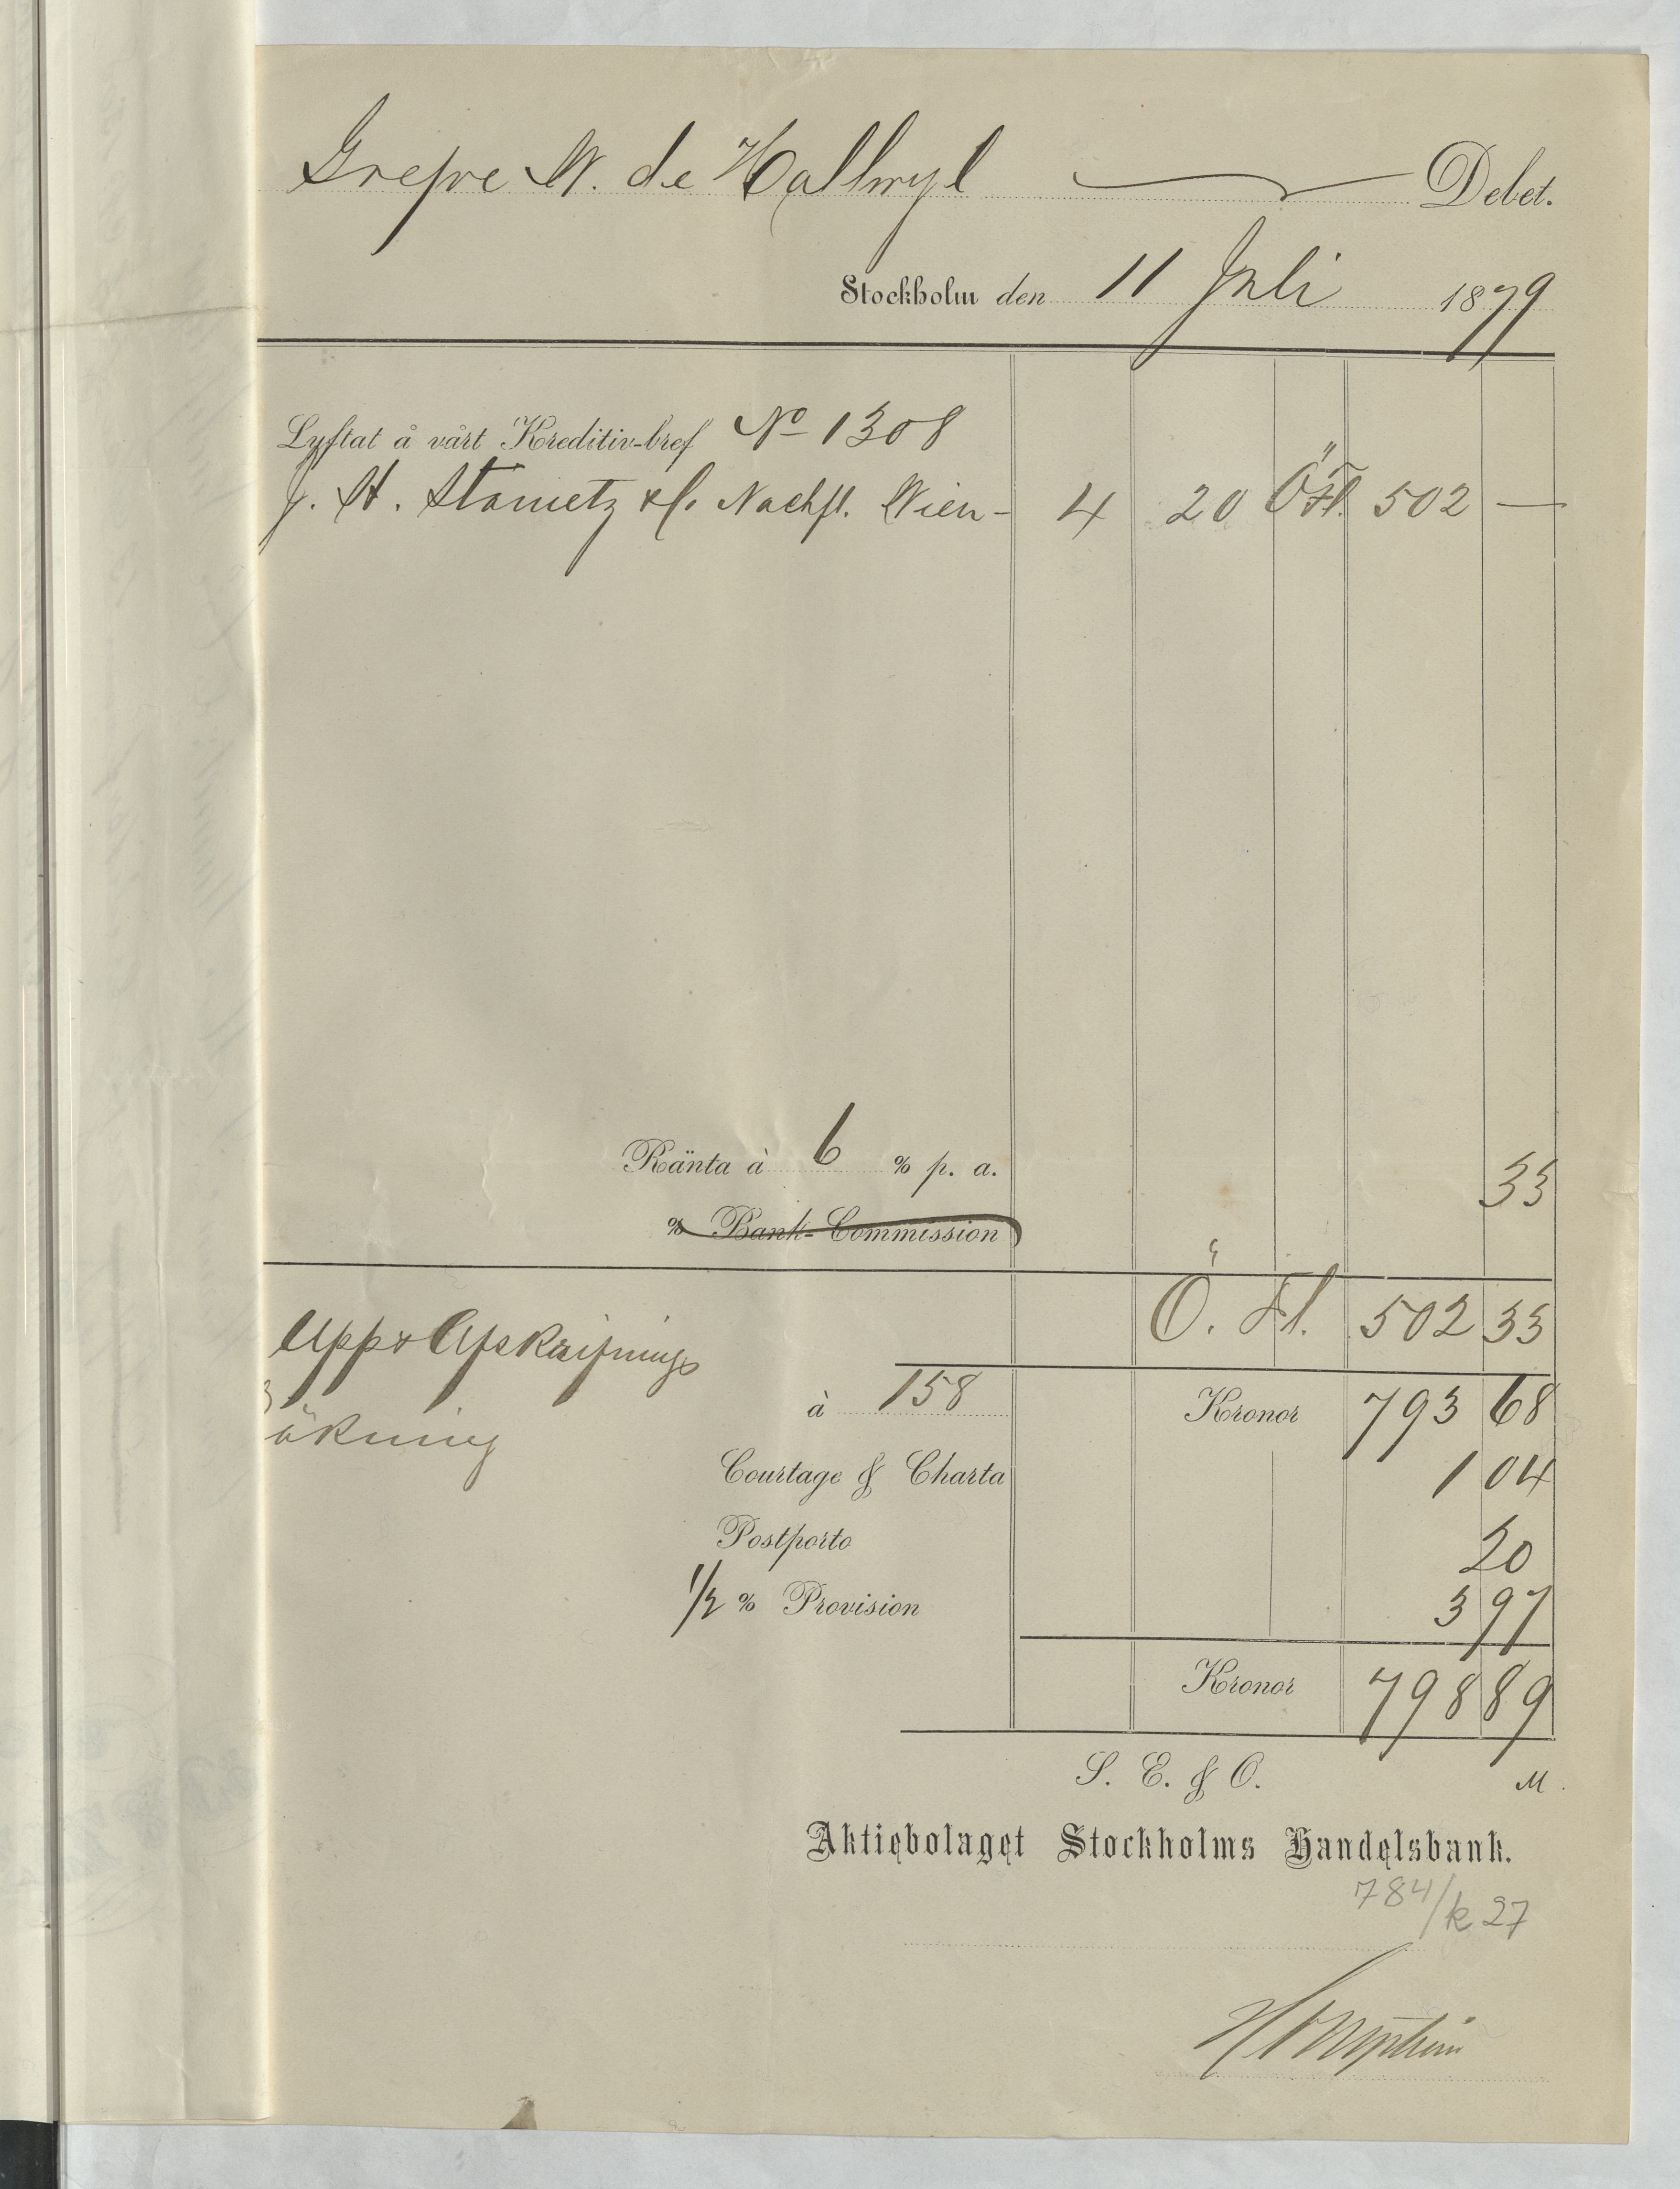 Grefve W. de Hallwyl Debet.
Stockholm den 11 Juli 1879
Lyftat å vårt Kreditiv-bref No 1308
J. H. Stametz & Co Nachfl. Wien - 4 20 ÖFl. 502 —
Ränta à 6 % p. a. 33
% Bank-Commission
Ö. Fl. 502 33
Upp & Afskrifnings
räkning
à 158 Kronor 793 68
Courtage & Charta 1 04
Postporto 20
1/2 % Provision 3 97
Kronor 798 89
S. E. & O. M.
Aktiebolaget Stockholms Handelsbank.
784/k 27